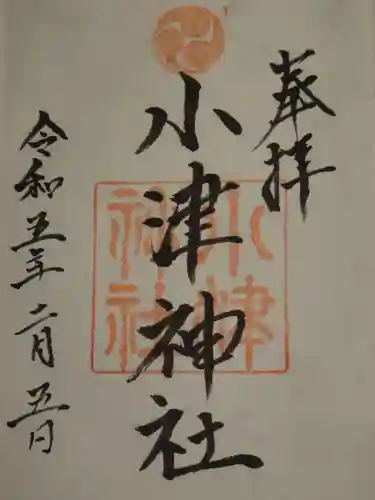 奉拝
小津神社
小津
神社
令和五年二月五日